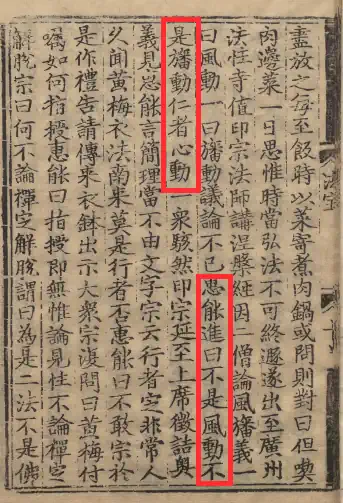 盡放之每至飯時以菜寄煮肉鍋或問則對曰但喫
肉邊菜一日思惟時當弘法不可終遯遂出至廣州
法性寺值印宗法師講涅槃經因二僧論風旛義一
曰風動一曰旛動議論不已惠能進曰不是風動不
是旛動仁者心動一眾駭然印宗延至上席徵詰奧
義見惠能言簡理當不由文字宗云行者定非常人
久聞黃梅衣法南來莫是行者否惠能曰不敢宗於
是作禮告請傳來衣鉢出示大眾宗復問曰黃梅付
囑如何指授惠能曰指授即無惟論見性不論禪定
解脫宗曰何不論禪定解脫謂曰為是二法不是佛